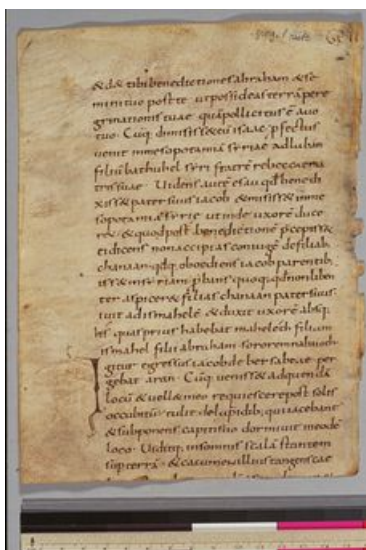 & d& tibi benedictiones abraham & se
mini tuo post te ut possideas terrā pere
grinationis tuae quā pollicitus ē auo
tuo. Cūq; dimisiss& eū isaac pfectus
uenit in mesopotamiā syriae ad laban
filiū bathuhel syri fratrē rebeccae ma
tris suae. Uidens autē esau qđ benedi
xiss& pater suus iacob & misiss& in me
sopotamiā syrie ut inde uxorē duce
r&. & quod post benedictionē pcepiss& ei
dicens non accipias coniugē de filiab;
chanaan. qđq; oboediens iacob parentib;
iss& in siriam. pbans quoq; qđ non liben
ter aspicer& filias chanaan pater suus.
iuit ad ismahelē & duxit uxorē absq;
his quas prius habebat maheleth filiam
ismahel filii abraham sororem nabaioth
Igitur egressus iacob de bersabee per
gebat aran. Cūq;ueniss& ad quendā
locū & uell& in eo requiescere post solis
occubitū. tulit de lapidib; qui iacebant
& subponens capiti suo dormiuit in eodē
loco. Uiditq; in somnis scalā stantem
sup terrā. & cacumen illius tangens cae